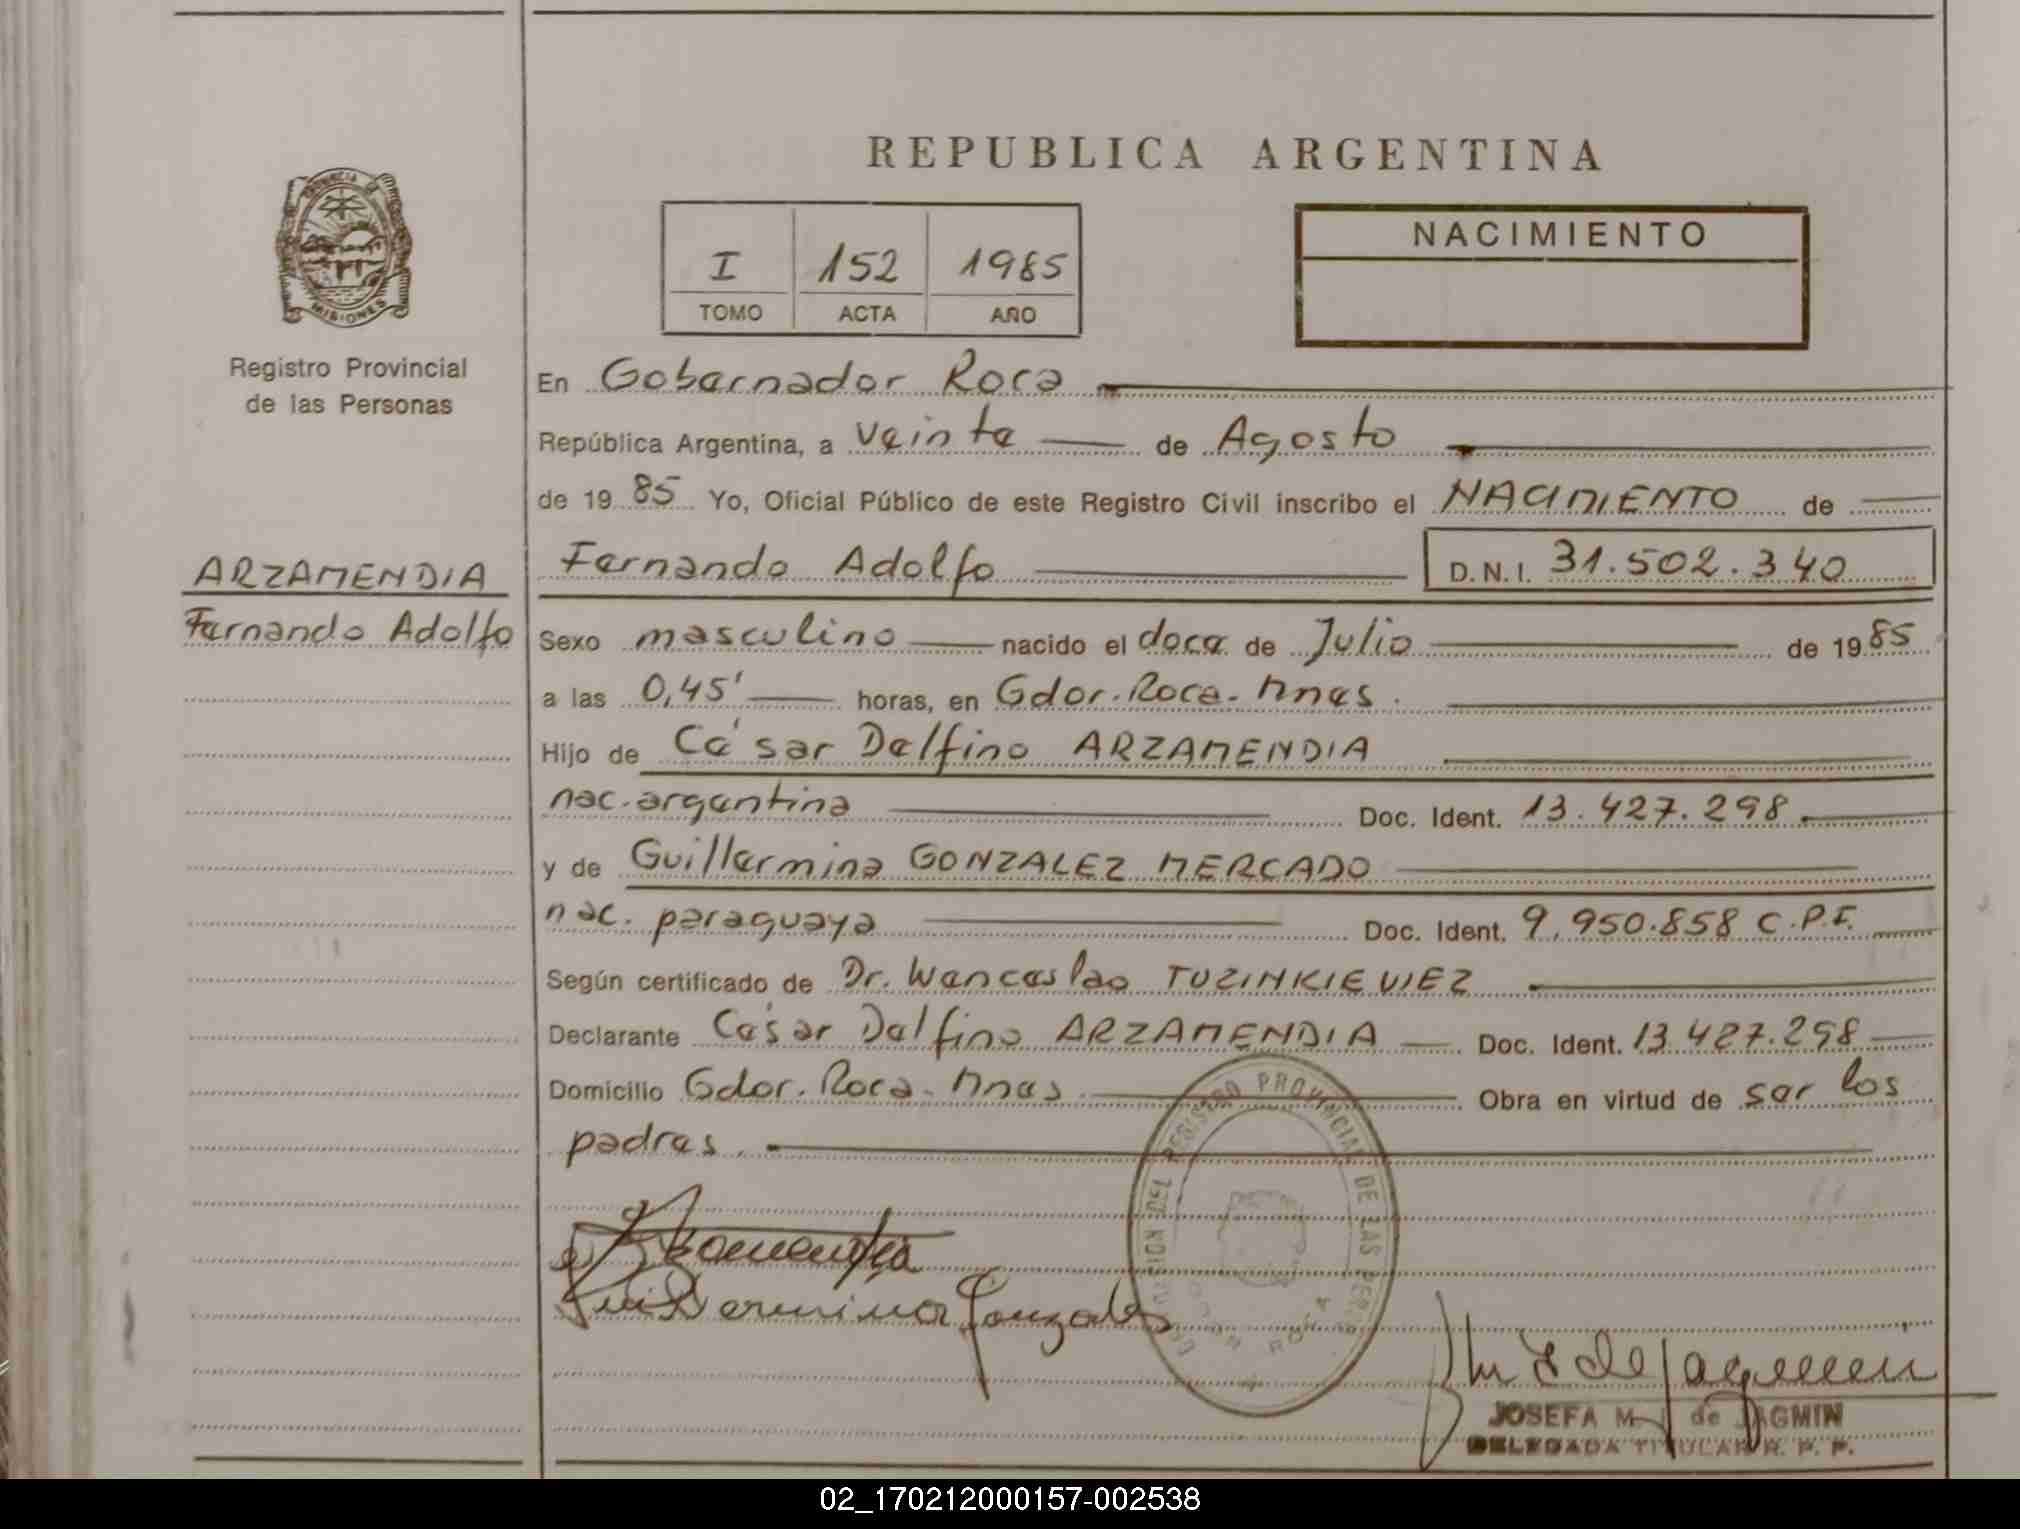 REPUBLICA ARGENTINA
PROVINCIA DE
MISIONES
Registro Provincial
de las Personas
I 152 1985
TOMO ACTA AÑO
NACIMIENTO
En Gobernador Roca
República Argentina, a veinte de Agosto
de 1985 Yo, Oficial Público de este Registro Civil inscribo el NACIMIENTO de
ARZAMENDIA
Fernando Adolfo
Fernando Adolfo D.N.I. 31.502.340
Sexo masculino nacido el doce de Julio de 1985
a las 0,45' horas, en Gdor. Roca - Mnes.
Hijo de César Delfino ARZAMENDIA
nac. argentina Doc. Ident. 13.427.298
y de Guillermina GONZALEZ MERCADO
nac. paraguaya Doc. Ident. 9.950.858 C.P.F.
Según certificado de Dr. Wenceslao TUZINKIEVIEZ
Declarante César Delfino ARZAMENDIA Doc. Ident. 13.427.298
Domicilio Gdor. Roca - Mnes Obra en virtud de ser los
padres.
REGISTRO PROVINCIAL DE LAS
ROCA
Guillermina Gonzales
JOSEFA M. de JAGMIN
DELEGADA TITULAR R. P. P.
02_170212000157-002538